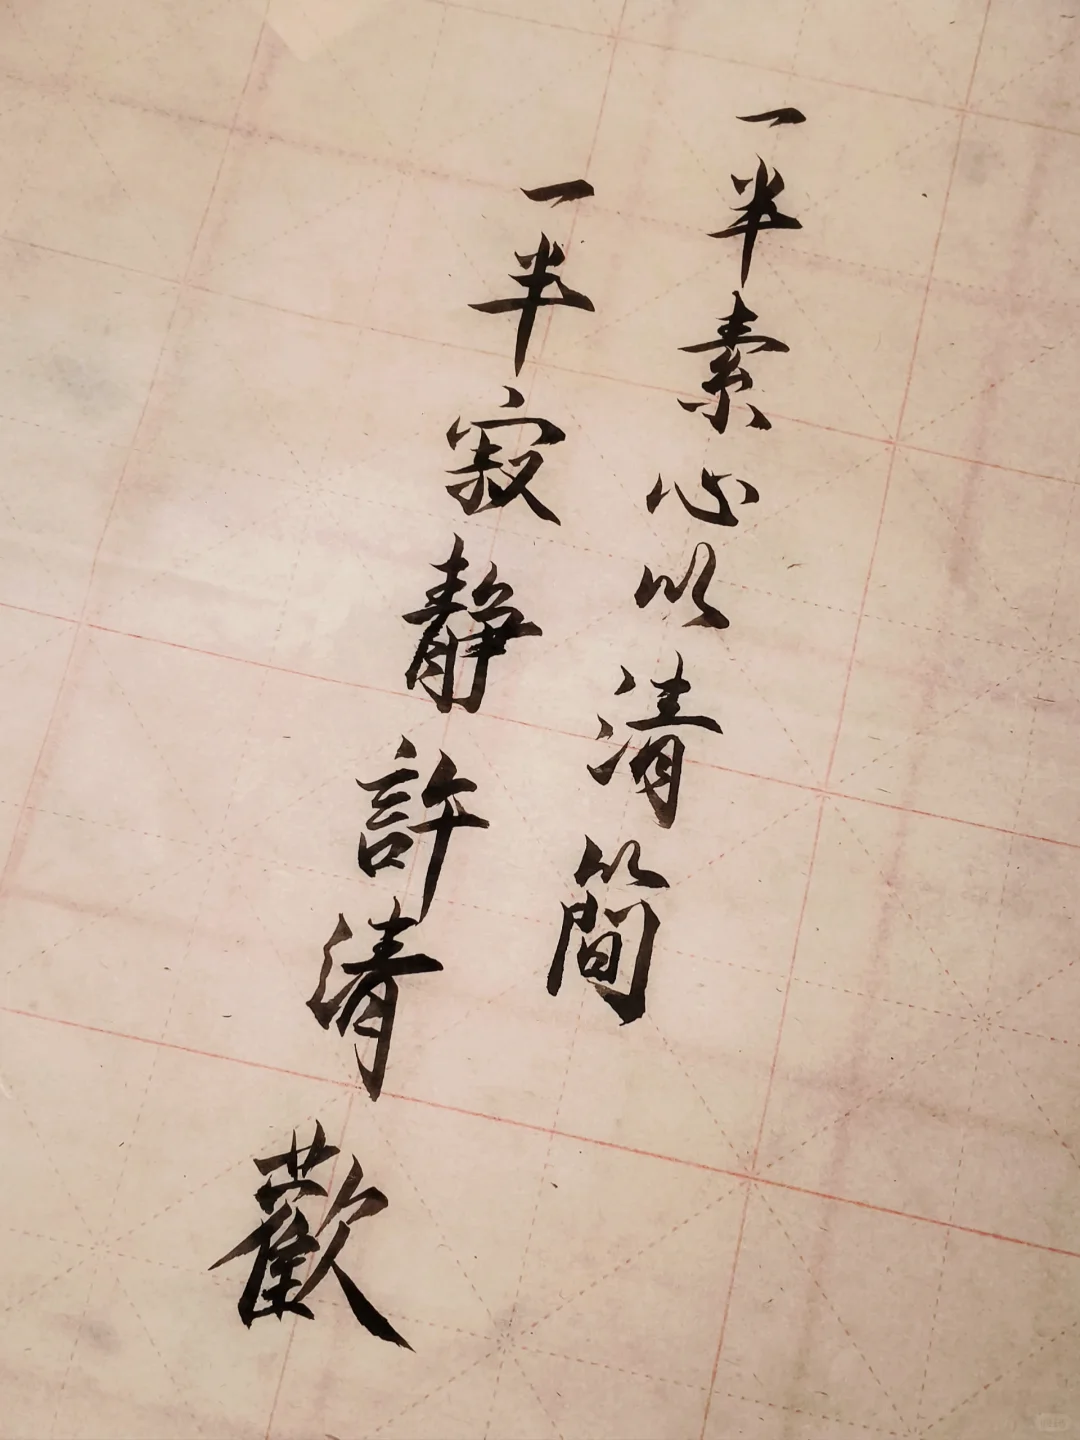 一半素心以清簡
一半寂靜許清歡